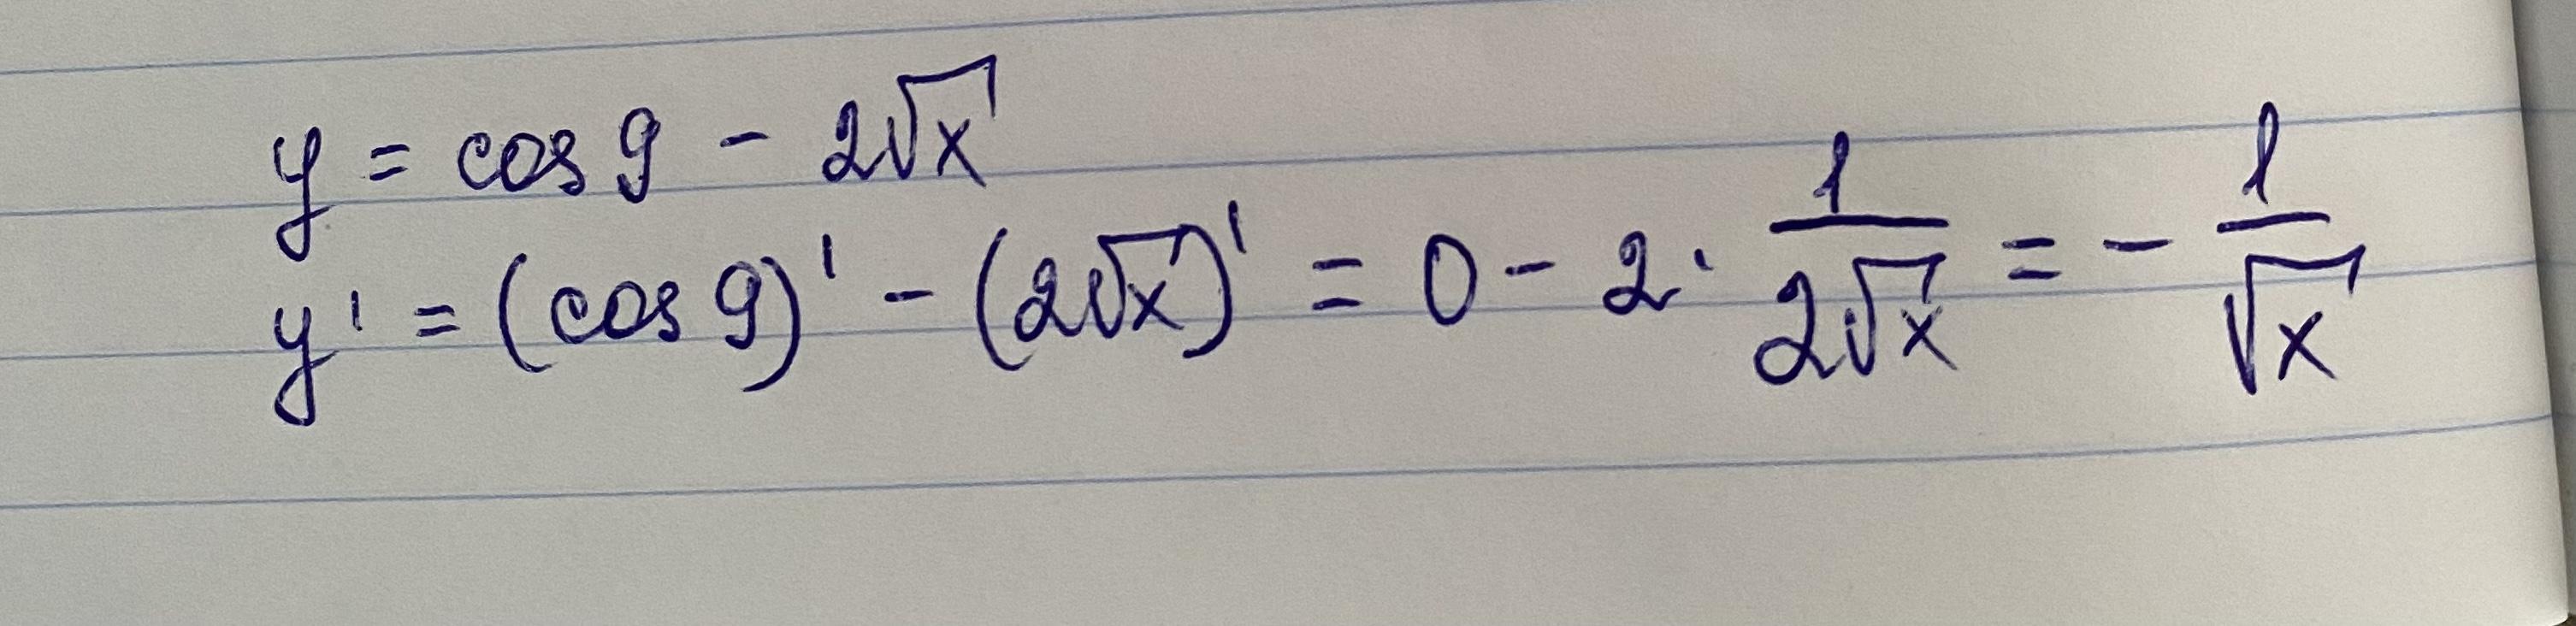 y = cos 9 - 2√x
y' = (cos 9)' - (2√x)' = 0 - 2 · 1/(2√x) = - 1/√x